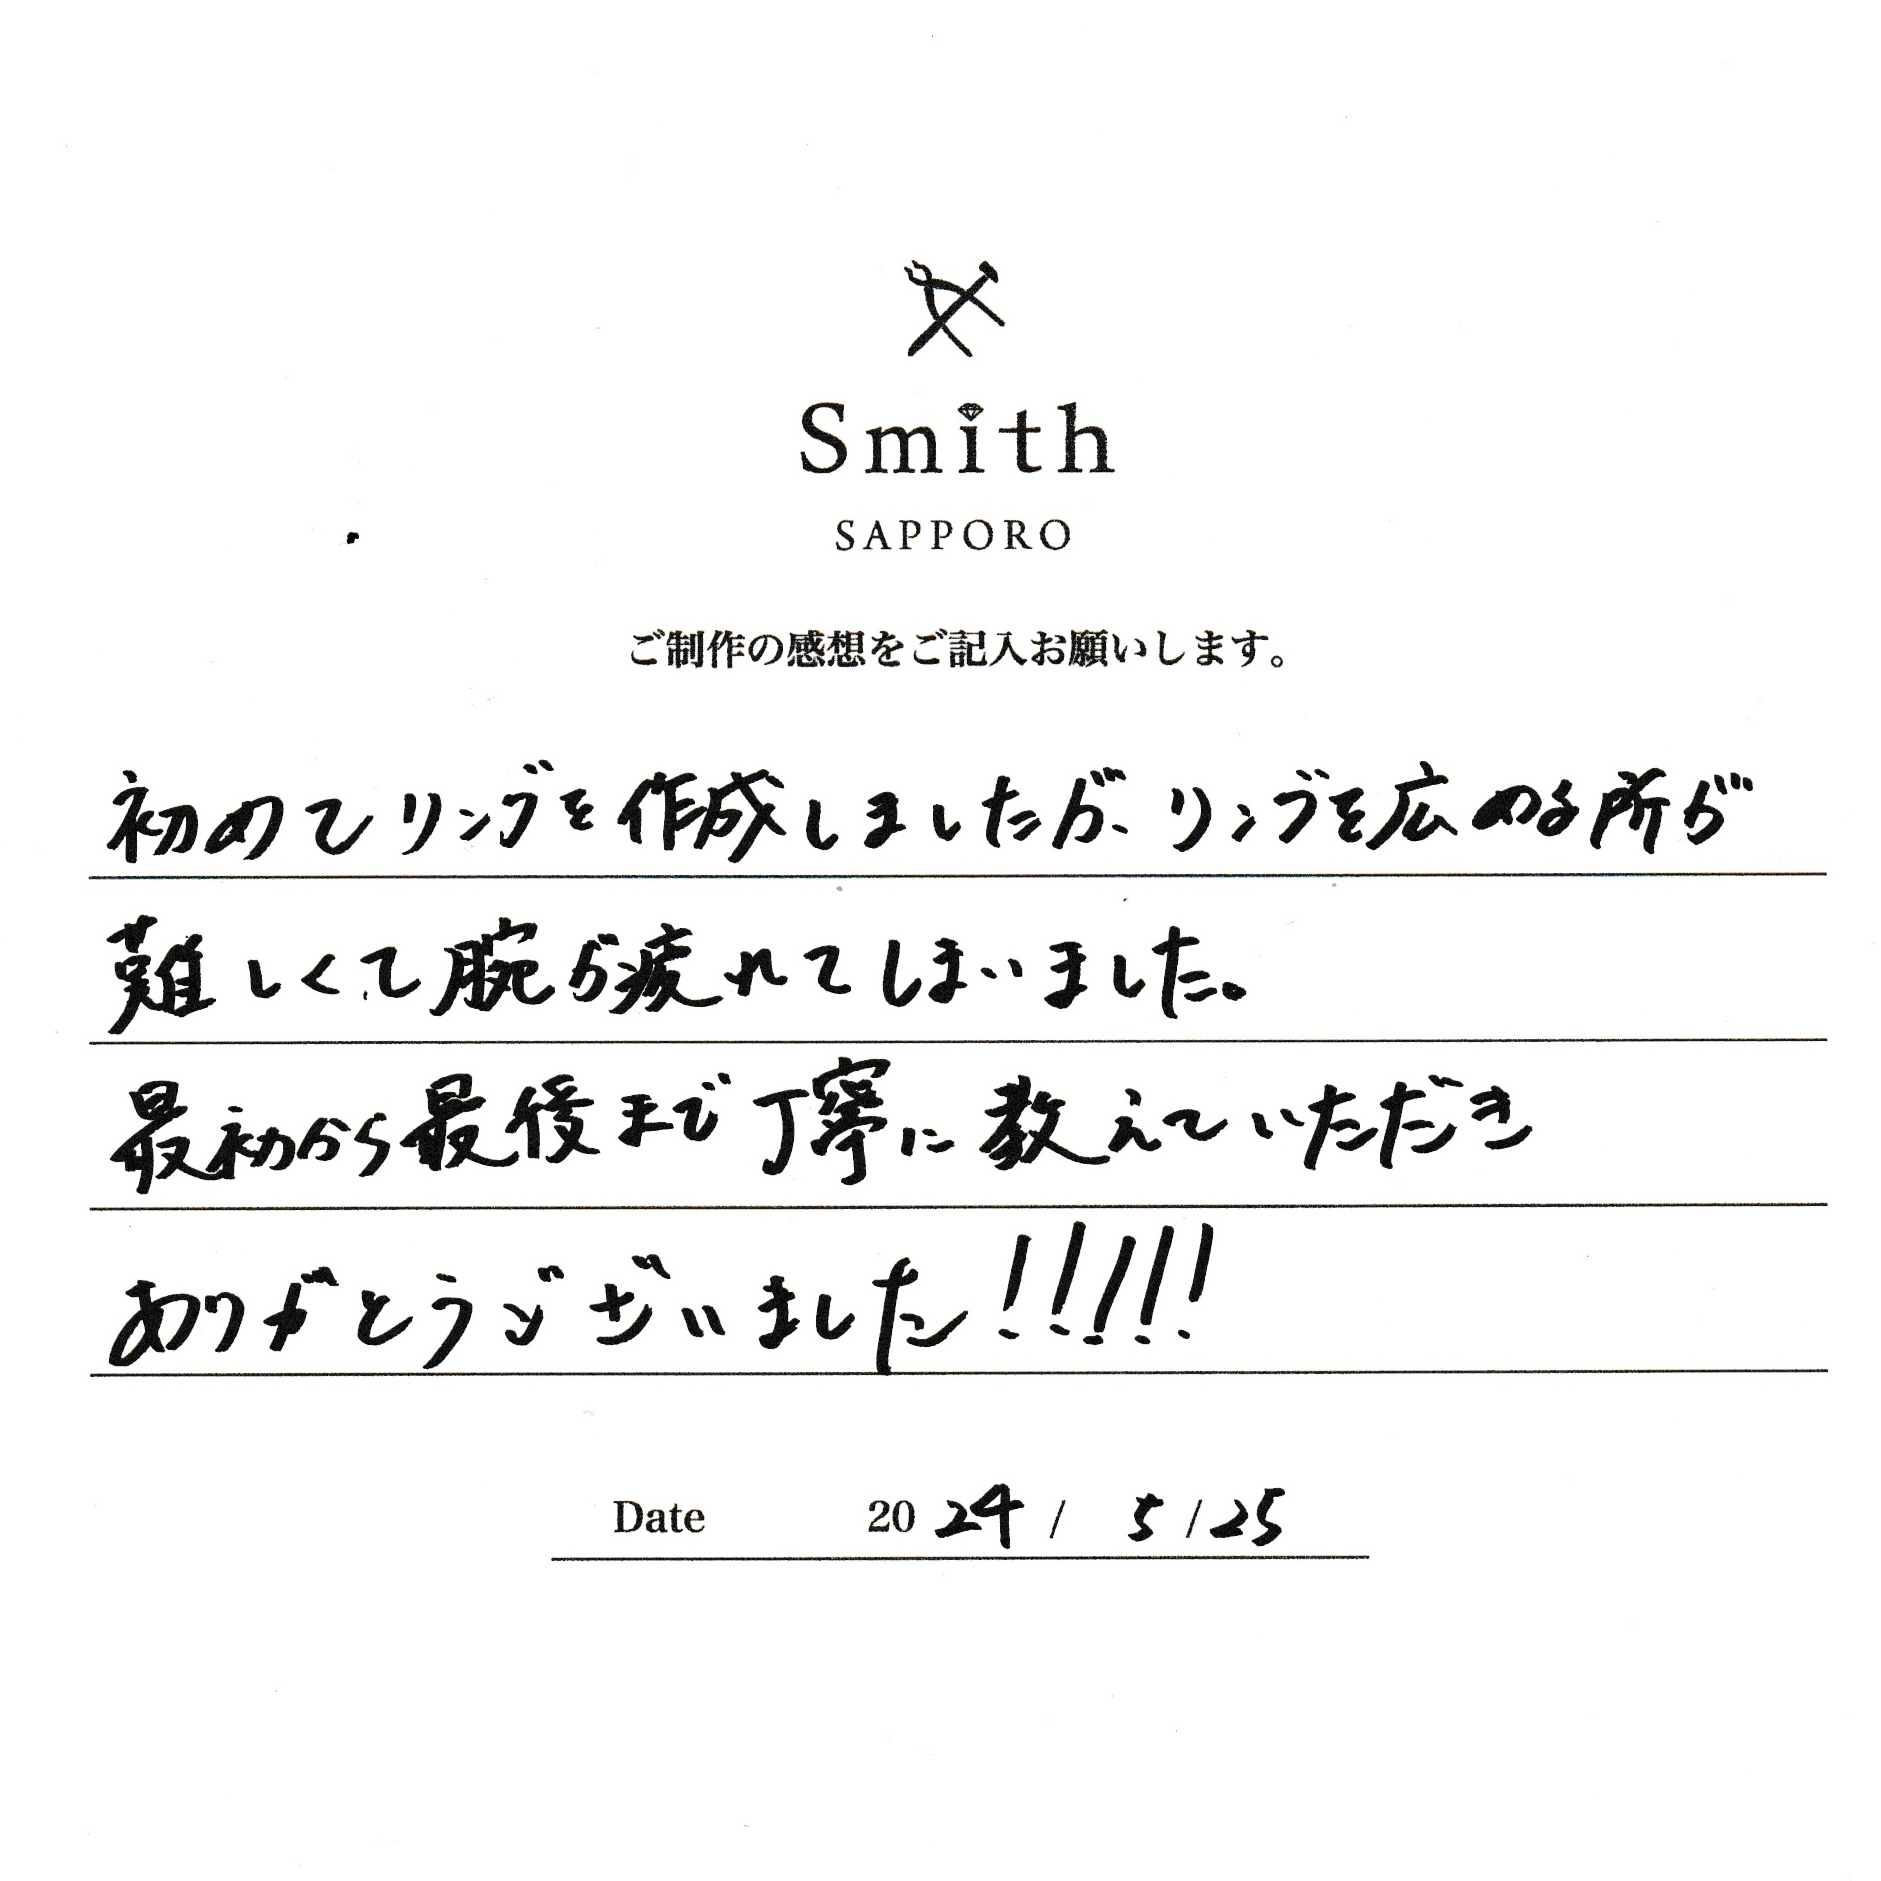 Smith
SAPPORO
ご制作の感想をご記入お願いします。
初めてリングを作成しましたが、リングを広める所が
難しくて腕が疲れてしまいました。
最初から最後まで丁寧に教えていただき
ありがとうございました!!!!!
Date 2024 / 5 / 25